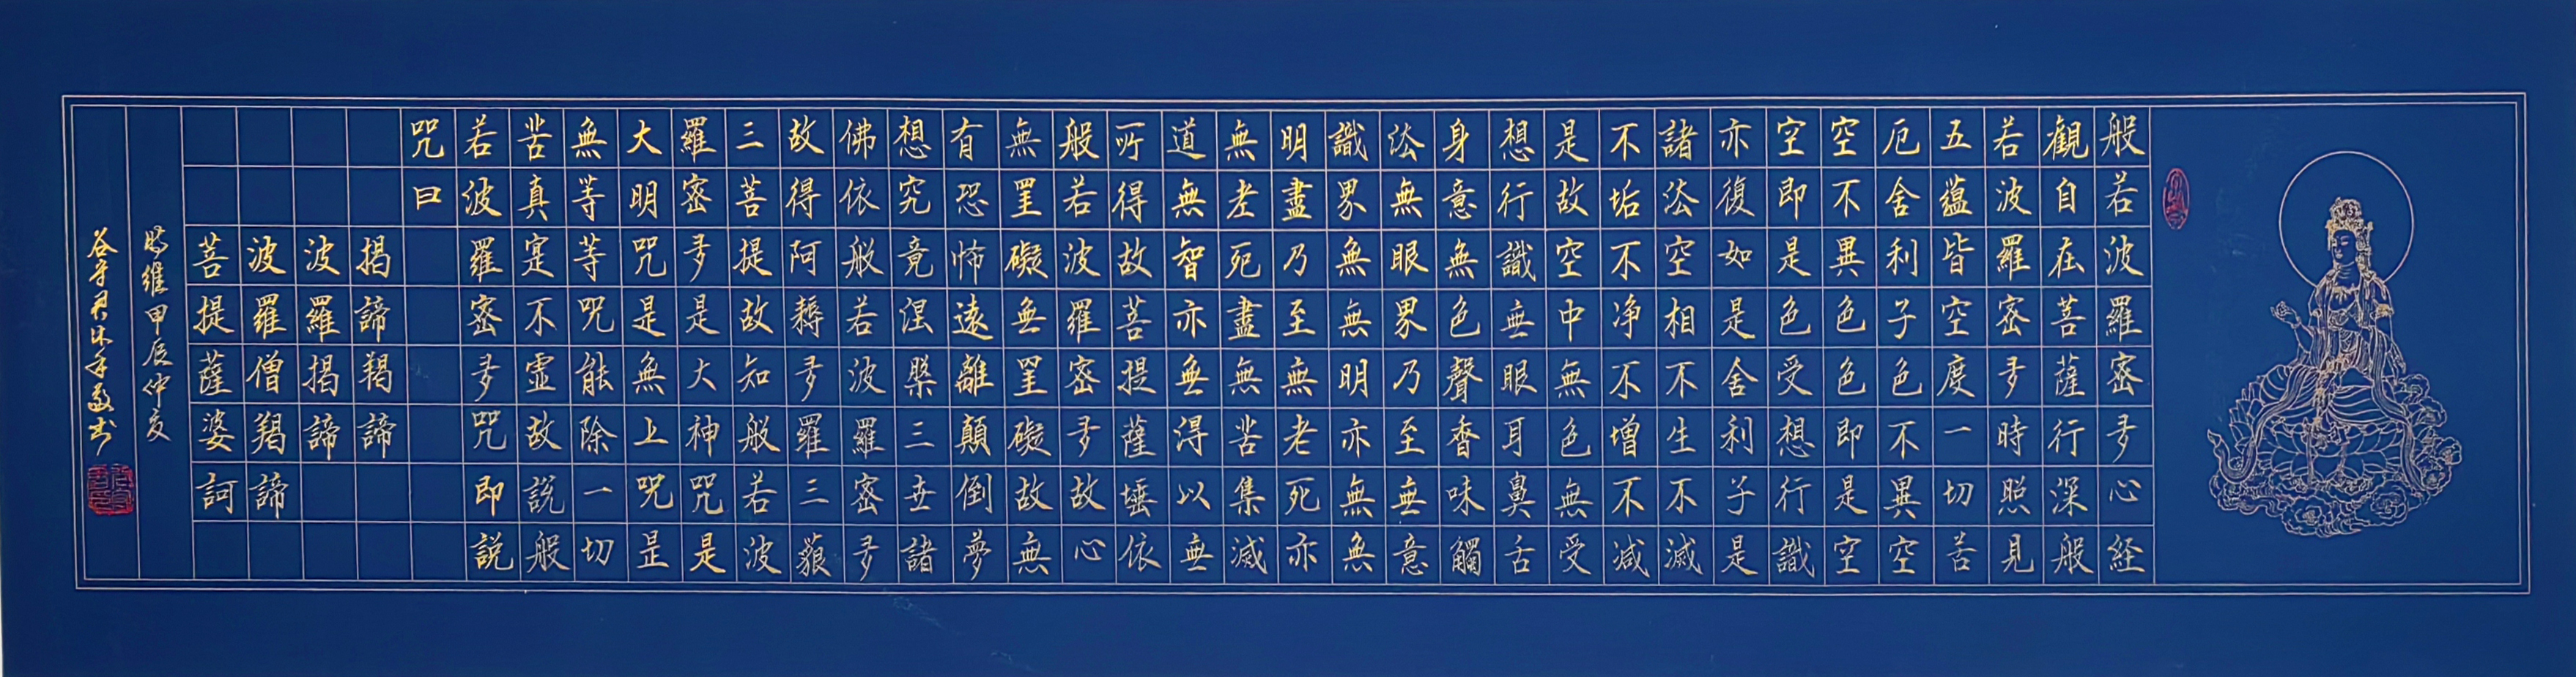 般若波羅密多心経
觀自在菩薩行深般
若波羅密多時照見
五蘊皆空度一切苦
厄舍利子色不異空
空不異色色即是空
空即是色受想行識
亦復如是舍利子是
諸法空相不生不滅
不垢不净不增不減
是故空中無色無受
想行識無眼耳鼻舌
身意無色聲香味觸
法無眼界乃至無意
識界無無明亦無無
明盡乃至無老死亦
無老死盡無苦集滅
道無智亦無得以無
所得故菩提薩埵依
般若波羅密多故心
無罣礙無罣礙故無
有恐怖遠離顛倒夢
想究竟涅槃三世諸
佛依般若波羅密多
故得阿耨多羅三藐
三菩提故知般若波
羅密多是大神咒是
大明咒是無上咒是
無等等咒能除一切
苦真寔不虛故説般
若波羅密多咒即説
咒曰
揭諦揭諦
波羅揭諦
波羅僧揭諦
菩提薩婆訶
時維甲辰仲夏
谷守君沐手敬书